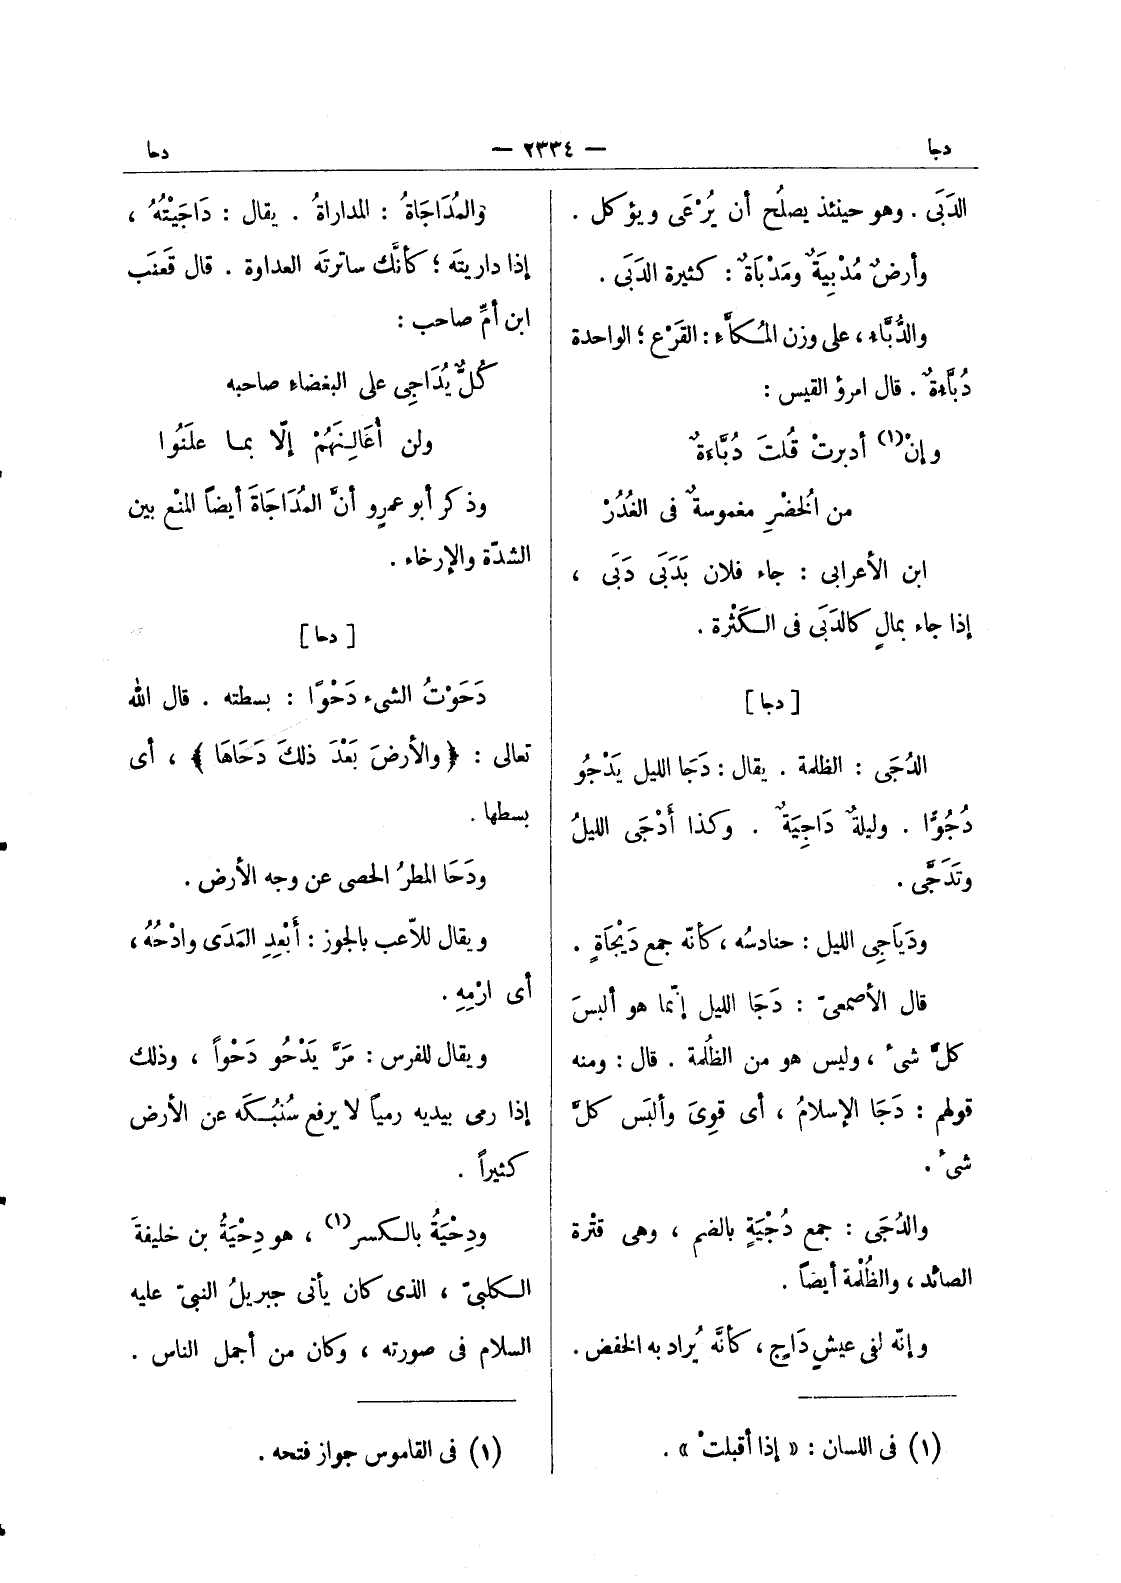 دجا — ٢٣٣٤ — دحا
الدَبَى . وهو حينئذ يصلُح أن يُرْعَى ويؤكل .
وأرضٌ مُدْبِيَةٌ ومَدْبَاةٌ : كثيرة الدَبَى .
والدُّبَّاء ، على وزن المُكاَّءِ : القَرْع ؛ الواحدة
دُبَّاءةٌ . قال امرؤ القيس :
وإنْ(١) أدبرتْ قُلتَ دُبَّاءةٌ
من الُخضْرِ مغموسةٌ فى الغُدُرْ
ابن الأعرابى : جاء فلان بَدَبَى دَبَى ،
إذا جاء بمالٍ كالدَبَى فى الكَثْرة .
[ دجا ]
الدُجَى : الظلمة . يقال : دَجَا الليل يَدْجُو
دُجُوًّا . وليلةٌ دَاجِيَةٌ . وكذا أَدْجَى الليلُ
وتَدَجَّى .
ودَيَاجِى الليل : حنادسُه ، كأنّه جمع دَيْجَاةٍ .
قال الأصمعىّ : دَجَا الليل إنّما هو ألبسَ
كلَّ شىءٌ ، وليس هو من الظُلمة . قال : ومنه
قولهم : دَجَا الإسلامُ ، أى قوِىَ وألبَس كلَّ
شىءٌ .
والدُجَى : جمع دُجْيَةٍ بالضم ، وهى قتْرة
الصائد ، والظُلْمة أيضاً .
وإنّه لفى عيشٍ دَاجٍ ، كأنَّه يُراد به الخفض .
(١) فى اللسان : « إذا أقبلتْ » .
والمُدَاجَاةُ : المداراةُ . يقال : دَاجَيْتُهُ ،
إذا داريتَه ؛ كأنَّك ساترتَه العداوة . قال قَعنَب
ابن أمِّ صاحب :
كُلٌّ يُدَاجِى على البغضاء صاحبه
ولن أُعَالِنَهُمْ إلّا بما علَنُوا
وذكر أبو عمرٍو أنَّ المُدَاجَاةَ أيضاً المنْع بين
الشدّة والإرخاء .
[ دحا ]
دَحَوْتُ الشىء دَحْوًا : بسطته . قال الله
تعالى : ﴿ والأرضَ بَعْدَ ذلكَ دَحَاهَا ﴾ ، أى
بسطها .
ودَحَا المطرُ الحصى عن وجه الأرض .
ويقال للاّعب بالجوز : أَبْعِدِ المَدَى وادْحُهُ ،
أى ارْمِهِ .
ويقال للفرس : مَرَّ يَدْحُو دَحْواً ، وذلك
إذا رمى بيديه رمياً لا يرفع سُنبُكَه عن الأرض
كثيراً .
ودِحْيَةُ بالكسر(١) ، هو دِحْيَةُ بن خليفةَ
الكلبىّ ، الذى كان يأتى جبريلُ النبىّ عليه
السلام فى صورته ، وكان من أجمل الناس .
(١) فى القاموس جواز فتحه .